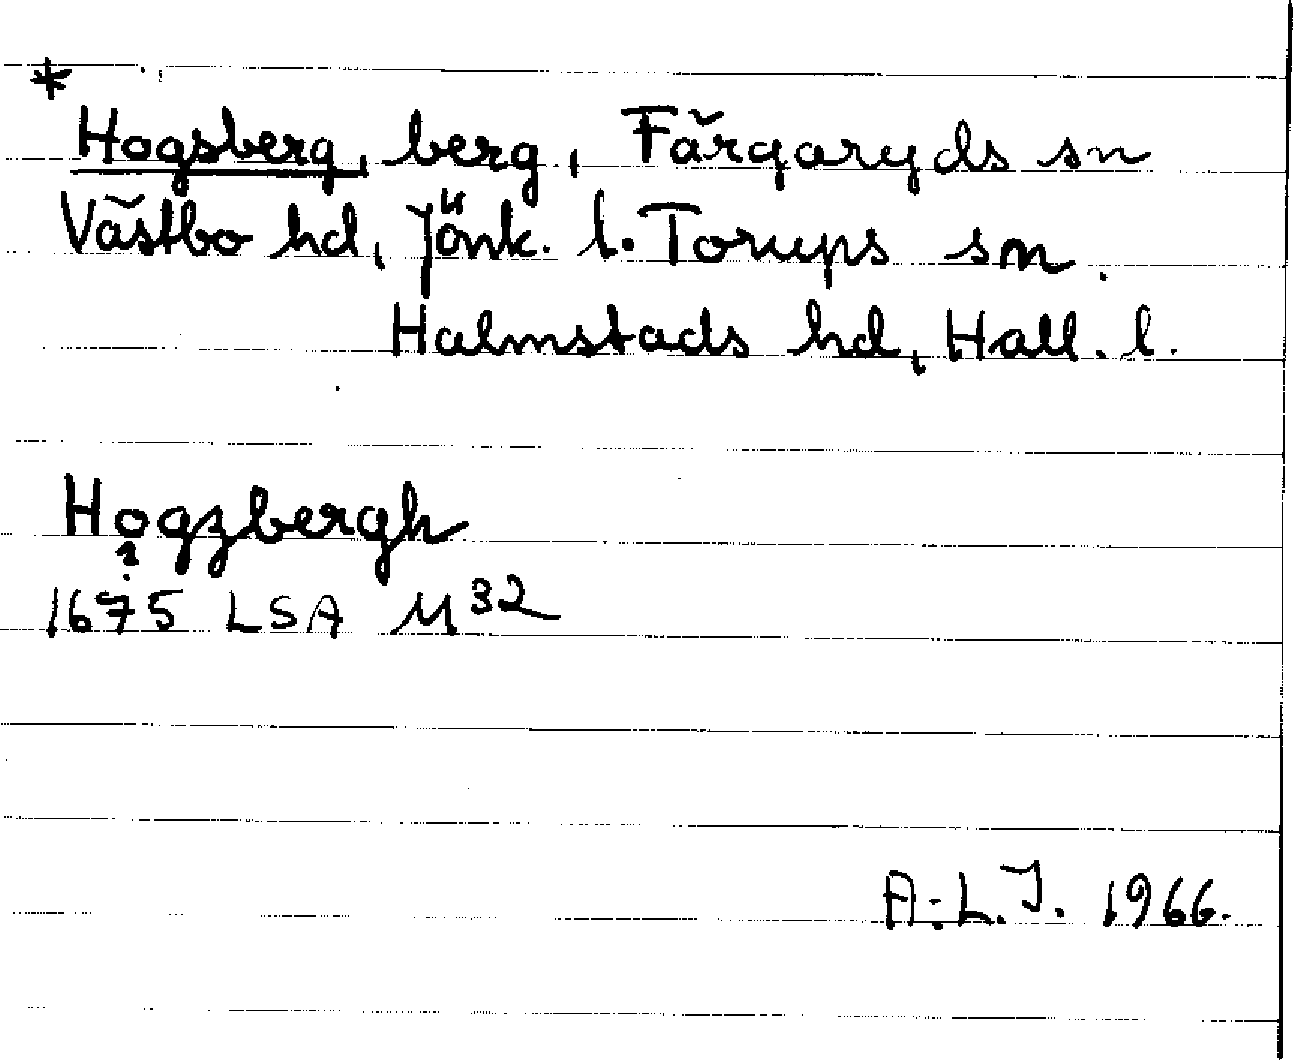 *
Hogsberg, berg, Färgaryds sn
Västbo hd, Jönk. l. Torups sn.
Halmstads hd, Hall. l.
Hogzbergh
?
1675 LSA M32
A.L.J. 1966.